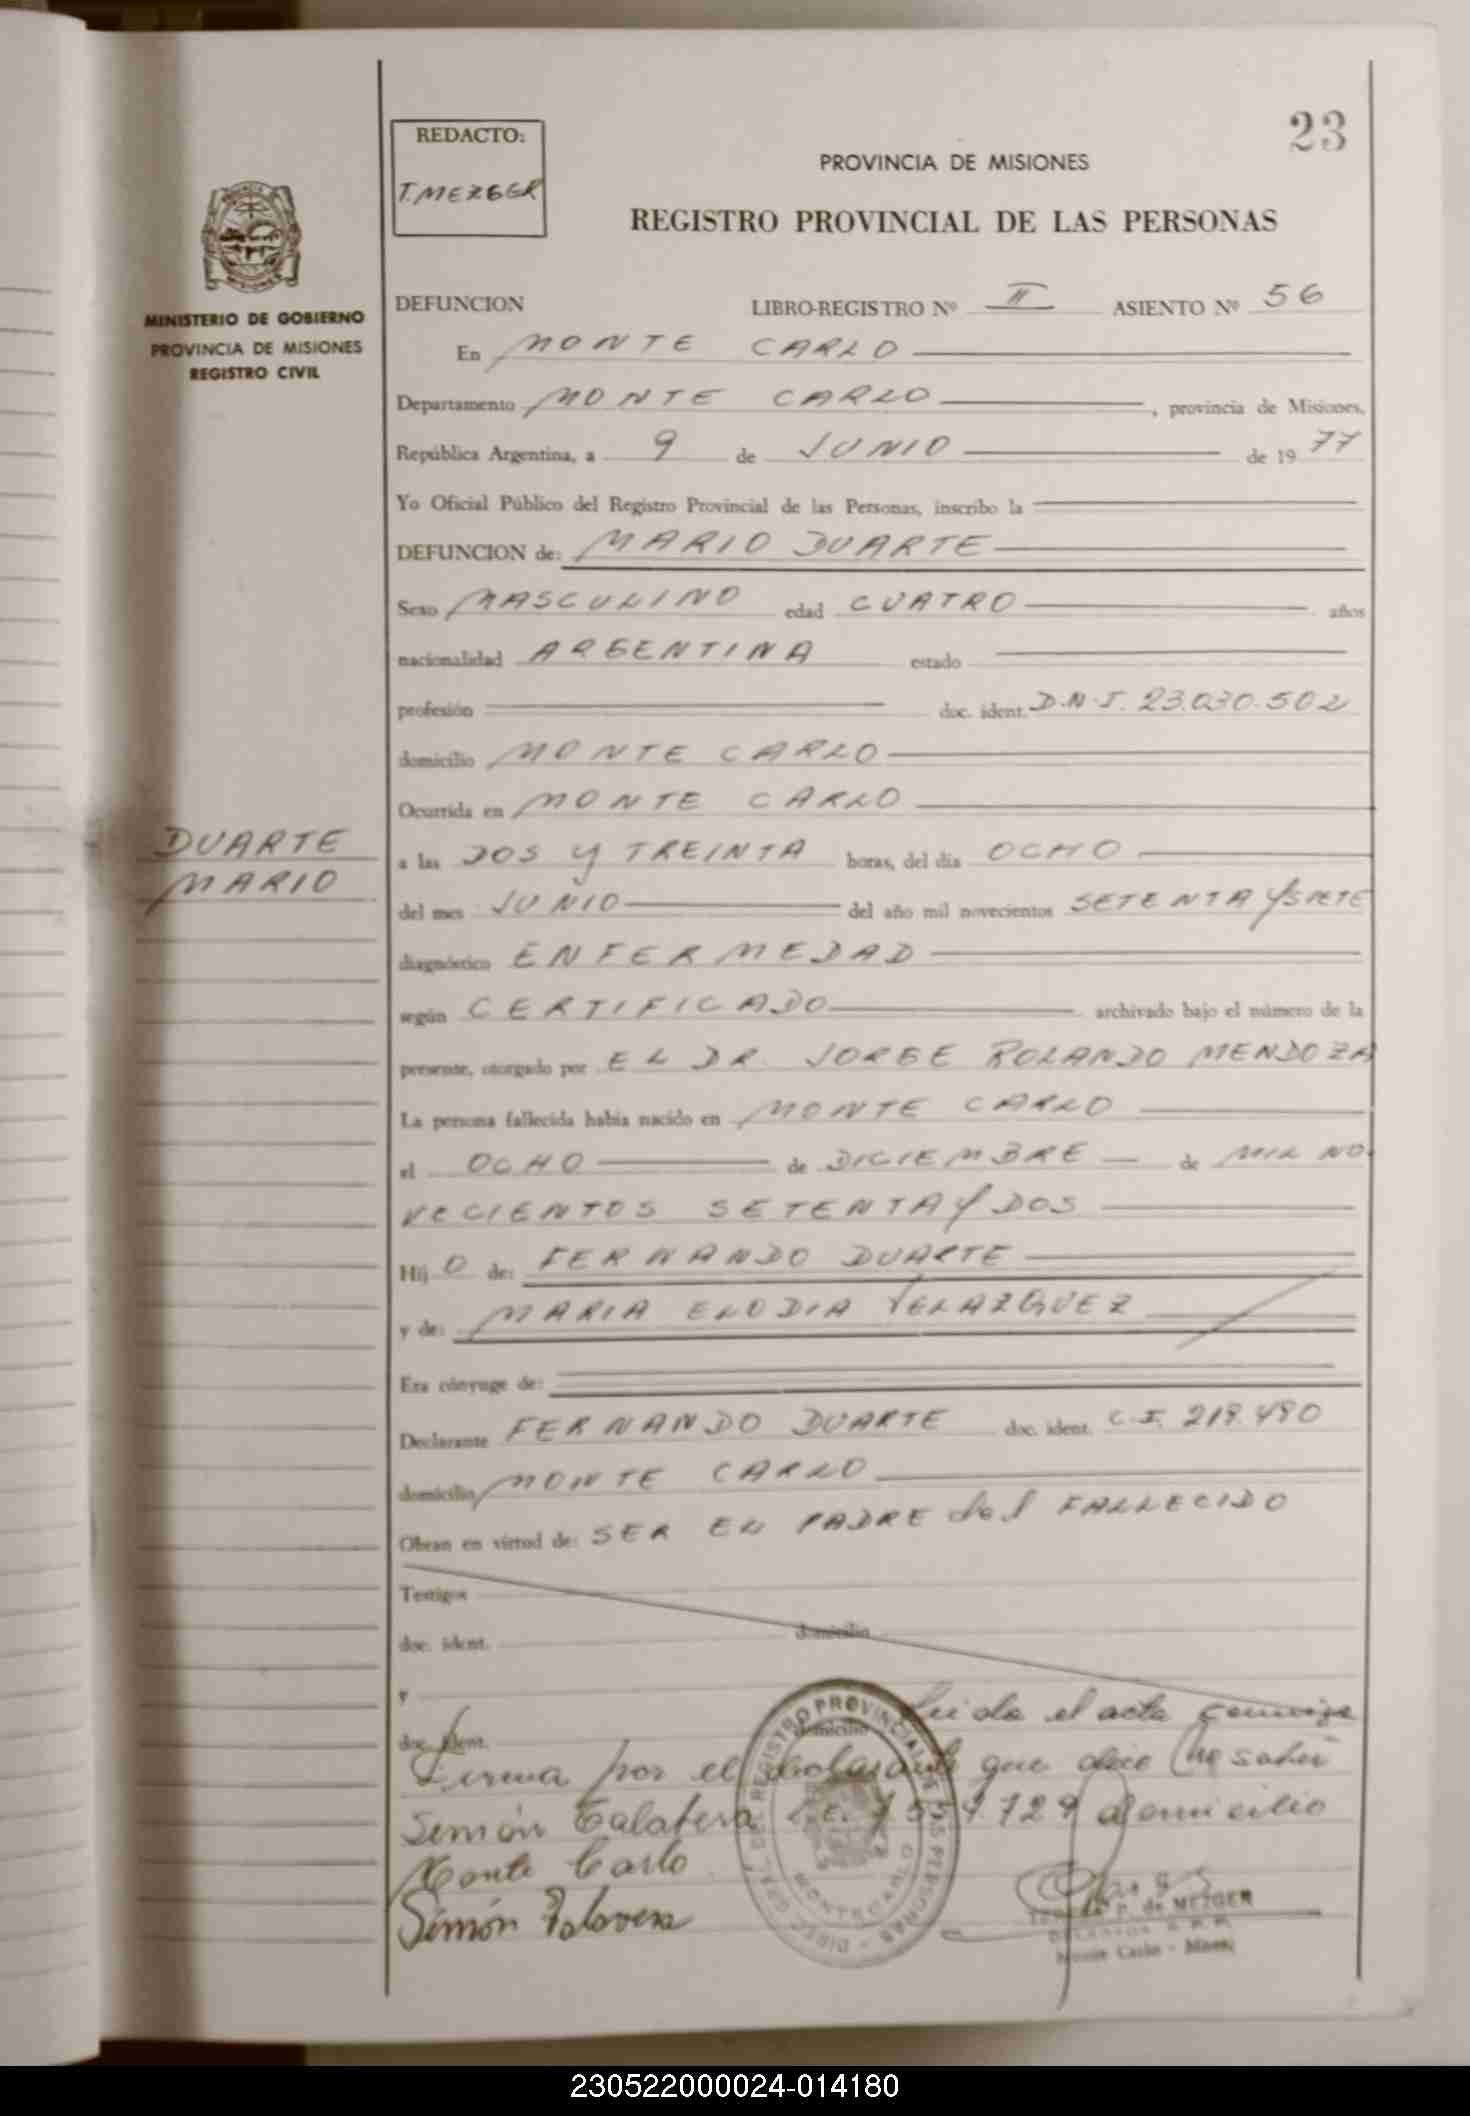 23
REDACTO:
T. MEZGER
PROVINCIA DE MISIONES
REGISTRO PROVINCIAL DE LAS PERSONAS
MINISTERIO DE GOBIERNO
PROVINCIA DE MISIONES
REGISTRO CIVIL
DEFUNCION LIBRO-REGISTRO Nº II ASIENTO Nº 56
En MONTE CARLO
Departamento MONTE CARLO, provincia de Misiones,
República Argentina, a 9 de JUNIO de 1977
Yo Oficial Público del Registro Provincial de las Personas, inscribo la
DEFUNCION de: MARIO DUARTE
Sexo MASCULINO edad CUATRO años
nacionalidad ARGENTINA estado
profesión doc. ident. D.N.I. 23.030.502
domicilio MONTE CARLO
Ocurrida en MONTE CARLO
DUARTE
MARIO
a las DOS y TREINTA horas, del día OCHO
del mes JUNIO del año mil novecientos SETENTA Y SIETE
diagnóstico ENFERMEDAD
según CERTIFICADO archivado bajo el número de la
presente, otorgado por EL DR. JORGE ROLANDO MENDOZA
La persona fallecida había nacido en MONTE CARLO
el OCHO de DICIEMBRE de MIL NO
VECIENTOS SETENTA Y DOS
Hij O de: FERNANDO DUARTE
y de: MARIA ELODIA VELAZQUEZ
Era cónyuge de:
Declarante FERNANDO DUARTE doc. ident. C.I. 219.490
domicilio MONTE CARLO
Obran en virtud de: SER EL PADRE del FALLECIDO
Testigos
doc. ident. domicilio
y
doc. ident. domicilio
Leida el acta
Firma por el declarante que dice no saber
Simón Talabera L.E. 7.554.729 domicilio
Monte Carlo
Simón Talavera
DIREC. GRAL. DEL REGISTRO PROVINCIAL DE LAS PERSONAS
MONTECARLO
P. de MEZGER
Monte Carlo - Mnes.
230522000024-014180